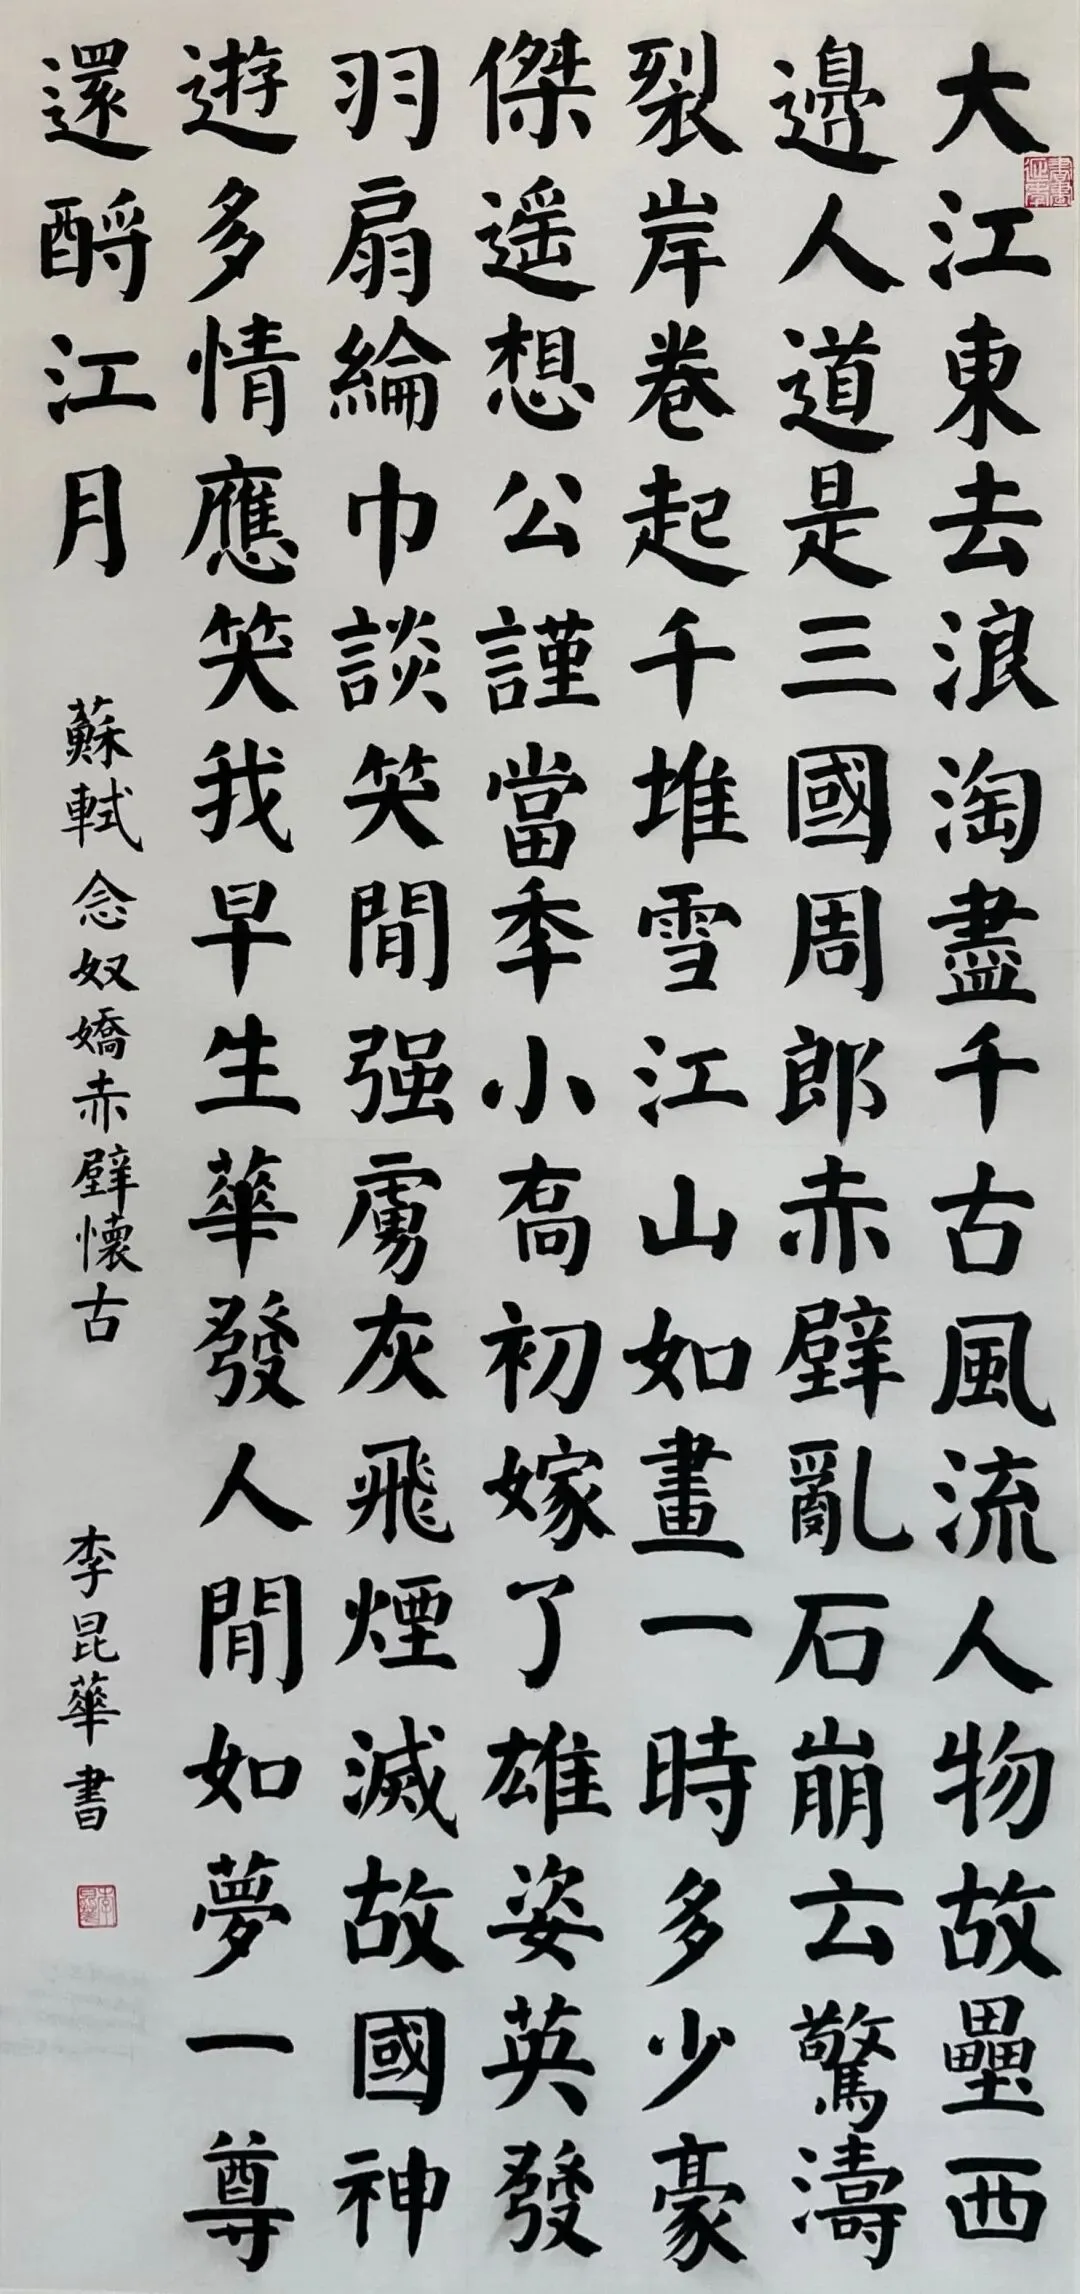 大江東去浪淘盡千古風流人物故壘西
邊人道是三國周郎赤壁亂石崩云驚濤
裂岸卷起千堆雪江山如畫一時多少豪
傑遥想公謹當秊小喬初嫁了雄姿英發
羽扇綸巾談笑閒强虜灰飛煙滅故國神
遊多情應笑我早生華發人閒如夢一尊
還酹江月
蘇軾念奴嬌赤壁懷古
李昆華書